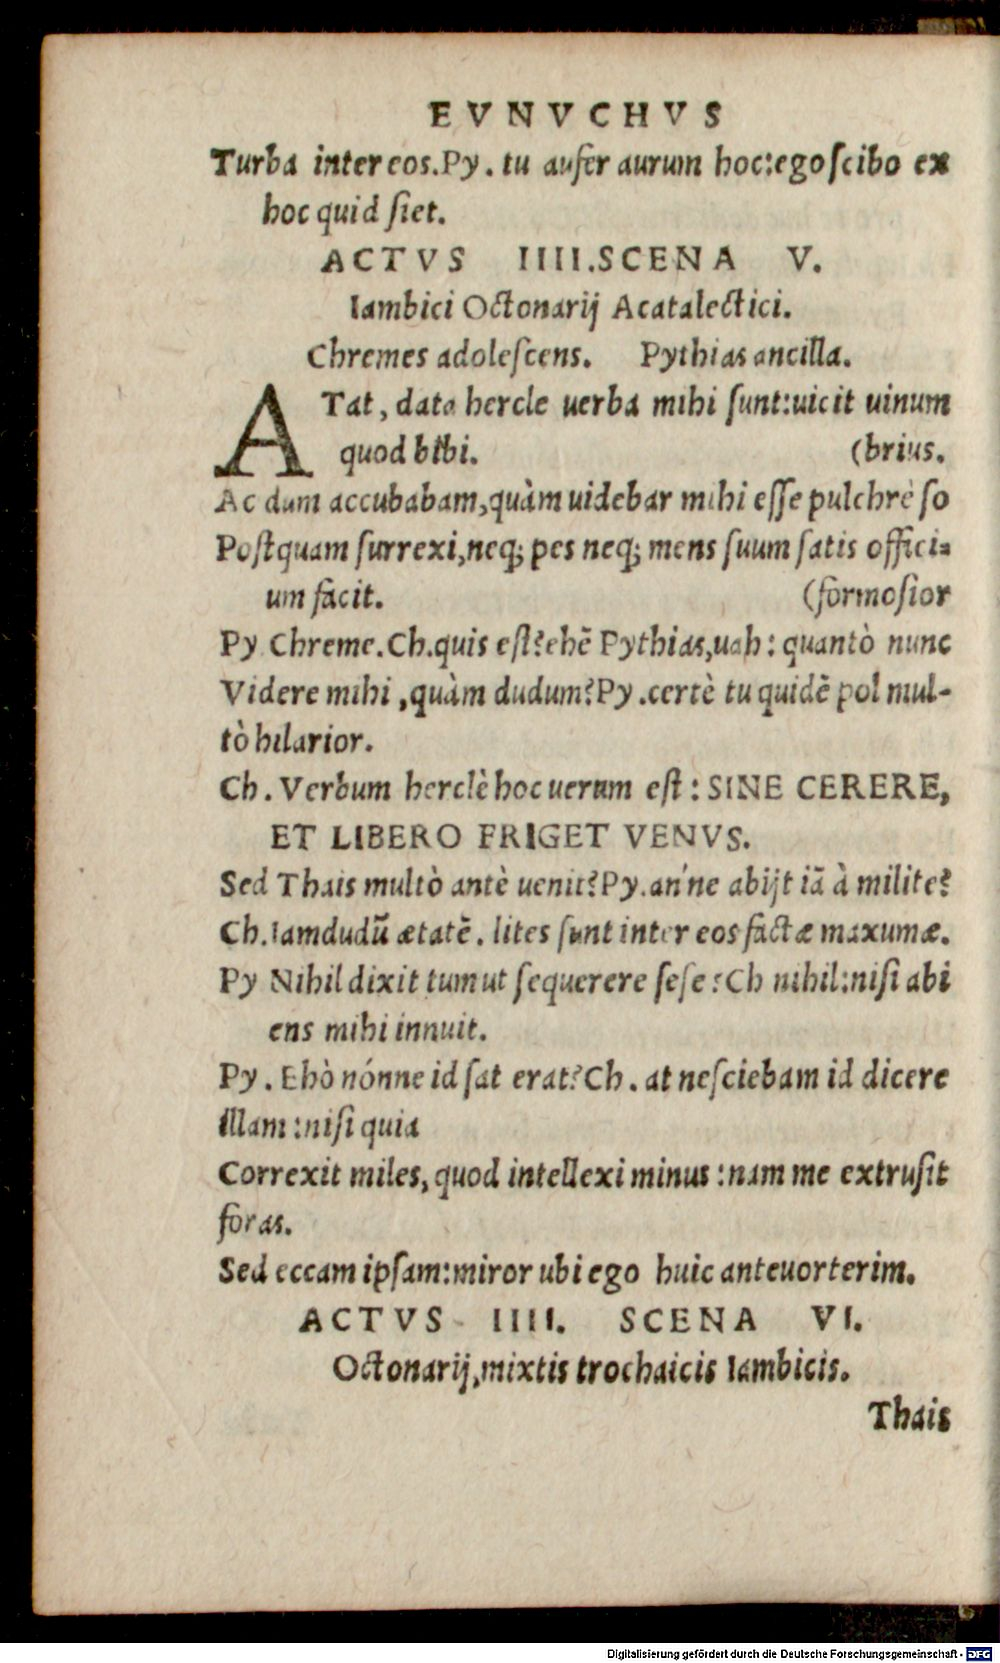 EVNVCHVS
Turba inter eos.Py. tu aufer aurum hoc:ego ſcibo ex
hoc quid ſiet.
ACTVS IIII.SCENA V.
Iambici Octonarij Acatalectici.
Chremes adoleſcens. Pythias ancilla.
ATat, data hercle uerba mihi ſunt:uicit uinum
quod bibi. (brius.
Ac dum accubabam,quàm uidebar mihi eſſe pulchrè ſo
Poſtquam ſurrexi,neq; pes neq; mens ſuum ſatis offici=
um facit. (formoſior
Py Chreme.Ch.quis eſt?ehē Pythias,uah: quantò nunc
Videre mihi ,quàm dudum?Py.certè tu quidē pol mul-
tò hilarior.
Ch. Verbum herclè hoc uerum eſt: SINE CERERE,
ET LIBERO FRIGET VENVS.
Sed Thais multò antè uenit?Py.an'ne abijt iā à milite?
Ch.Iamdudū ætatē. lites ſunt inter eos factæ maxumæ.
Py Nihil dixit tum ut ſequerere ſeſe?Ch nihil:niſi abi
ens mihi innuit.
Py. Ehò nónne id ſat erat?Ch. at neſciebam id dicere
illam :niſi quia
Correxit miles, quod intellexi minus :nam me extruſit
foras.
Sed eccam ipſam:miror ubi ego huic anteuorterim.
ACTVS IIII. SCENA VI.
Octonarij,mixtis trochaicis Iambicis.
Thais
Digitalisierung gefördert durch die Deutsche Forschungsgemeinschaft - DFG